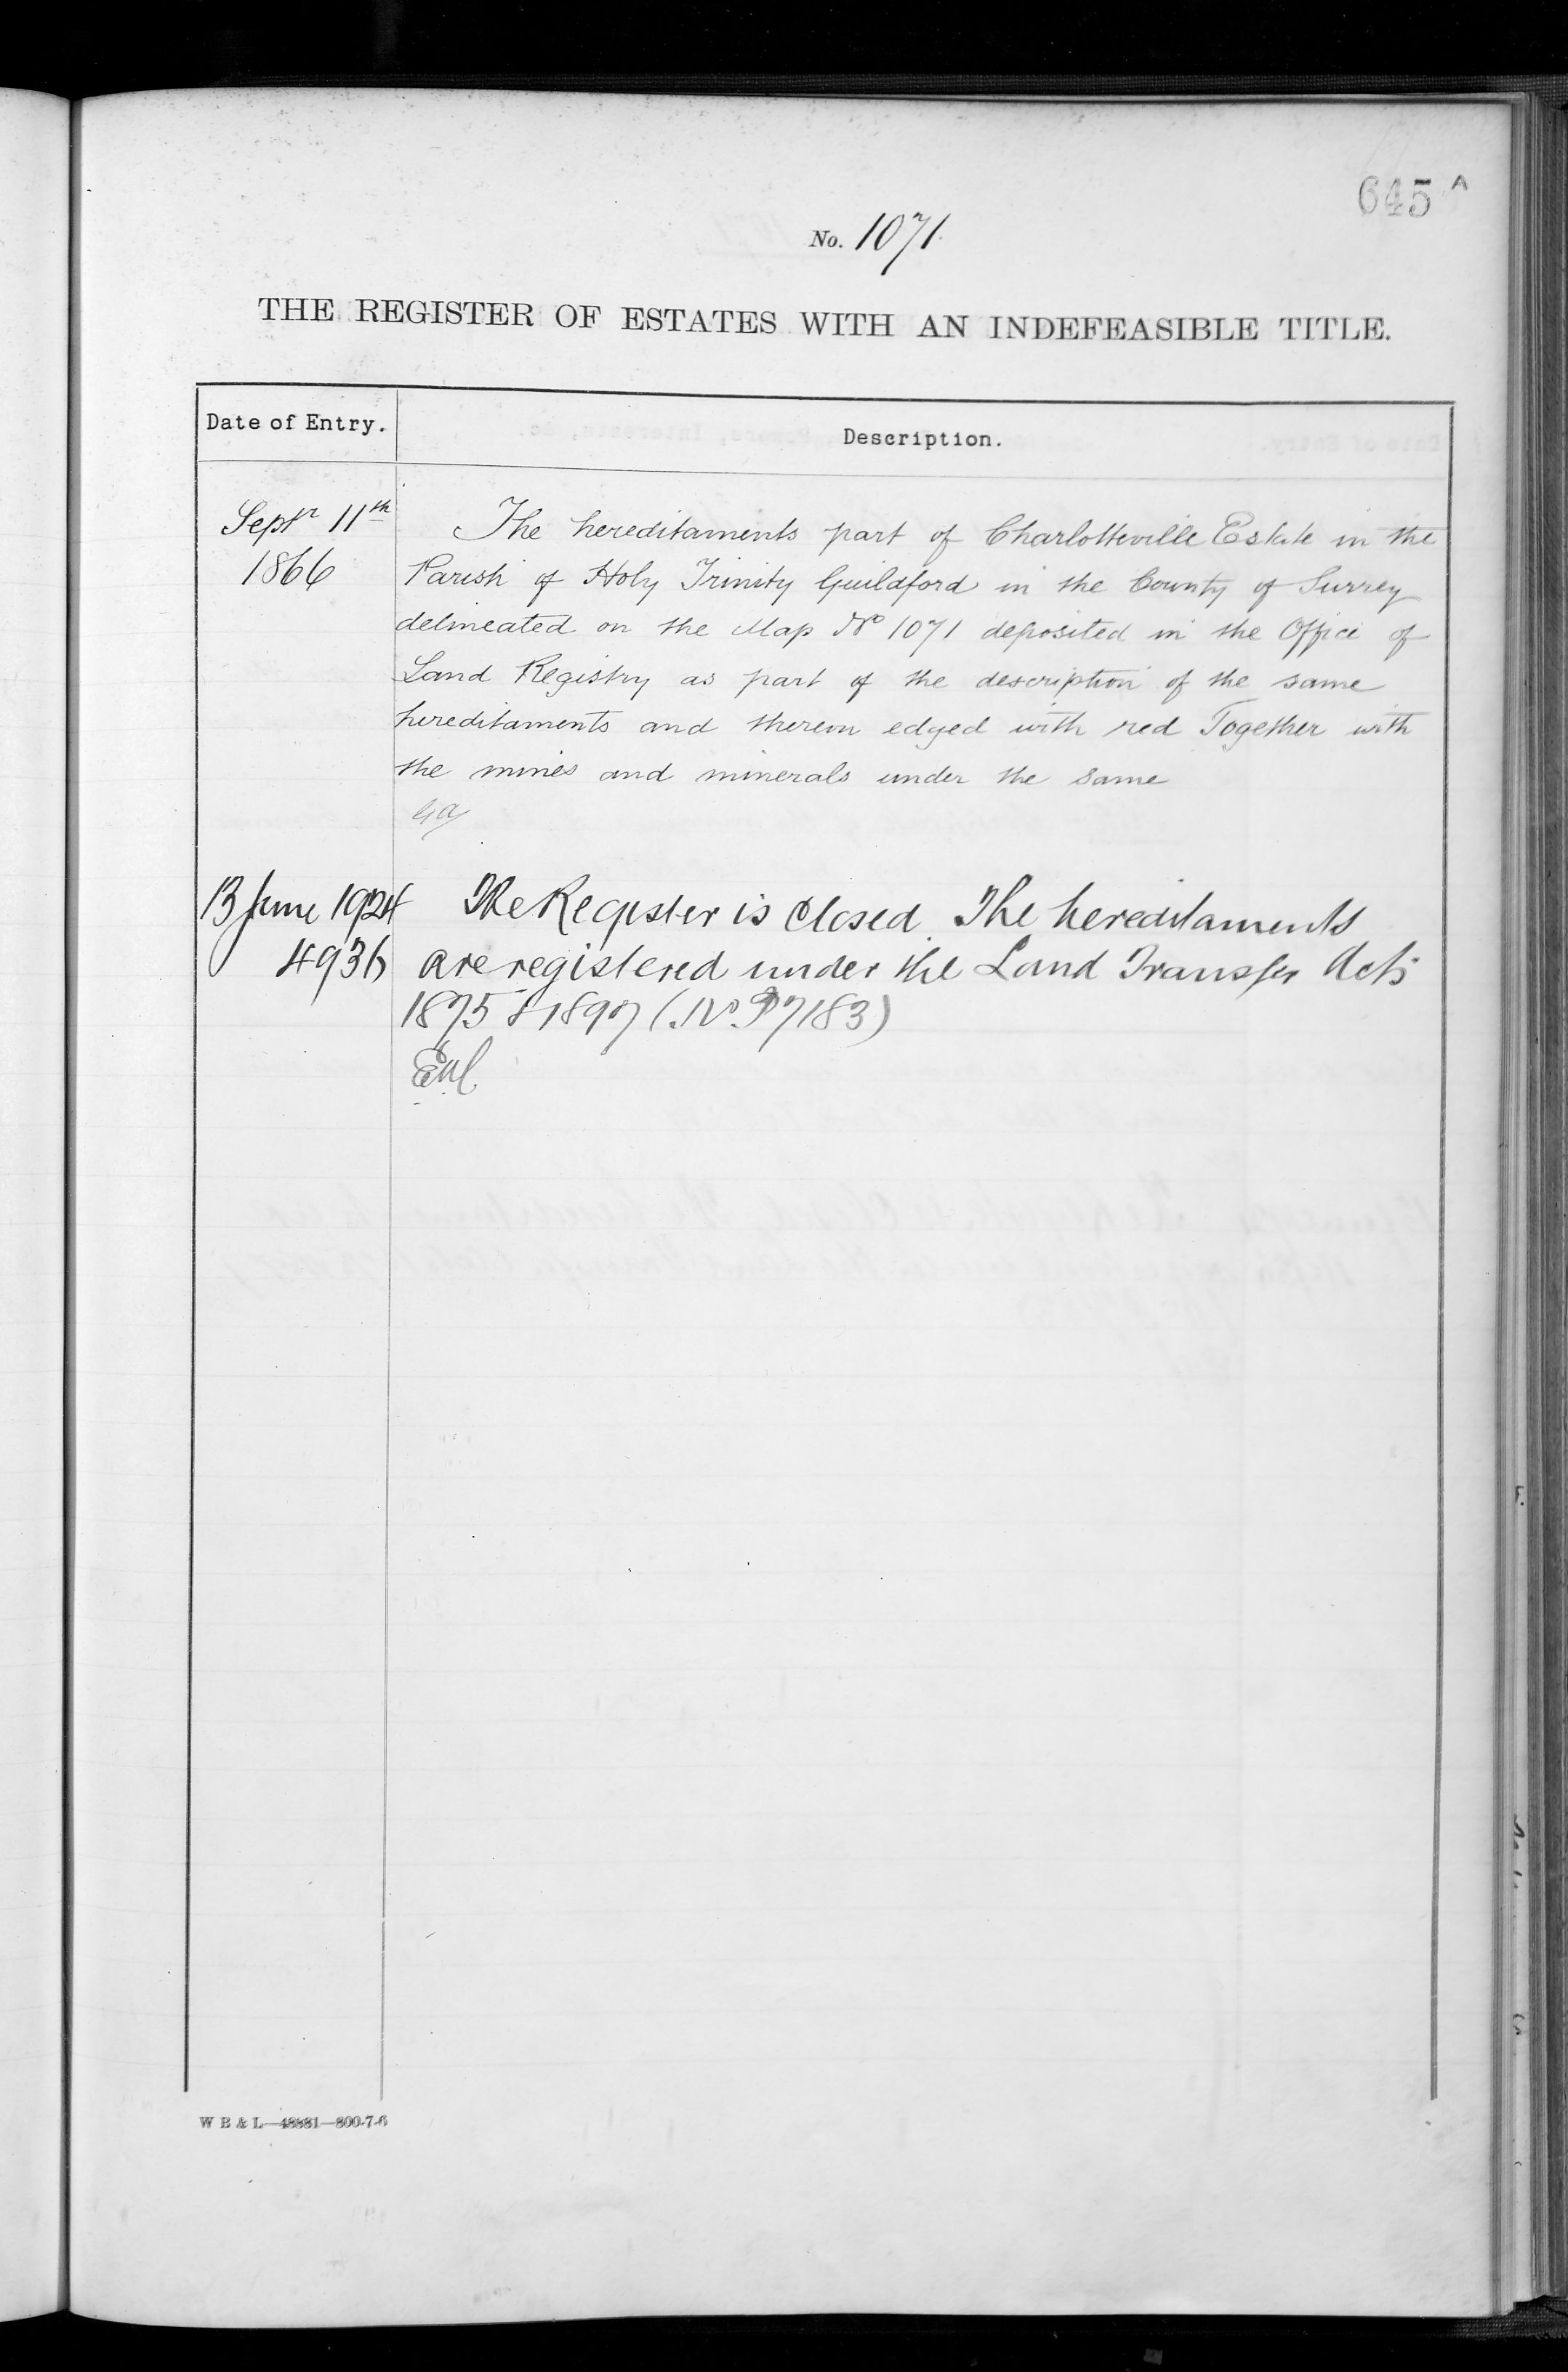 645 A
No. 1071
THE REGISTER OF ESTATES WITH AN INDEFEASIBLE TITLE.
Date of Entry.
Description.
Septr 11th
1866
The hereditaments part of Charlotteville Estate in the
Parish of Holy Trinity Guildford in the County of Surrey
delineated on the Map No 1071 deposited in the Office of
Land Registry as part of the description of the same
hereditaments and thereon edged with red Together with
the mines and minerals under the same
13 June 1924
4936
The Register is Closed. The hereditaments
are registered under the Land Transfer Acts
1875 & 1897 (No. P7183)
W B & L—48881—800-7-6